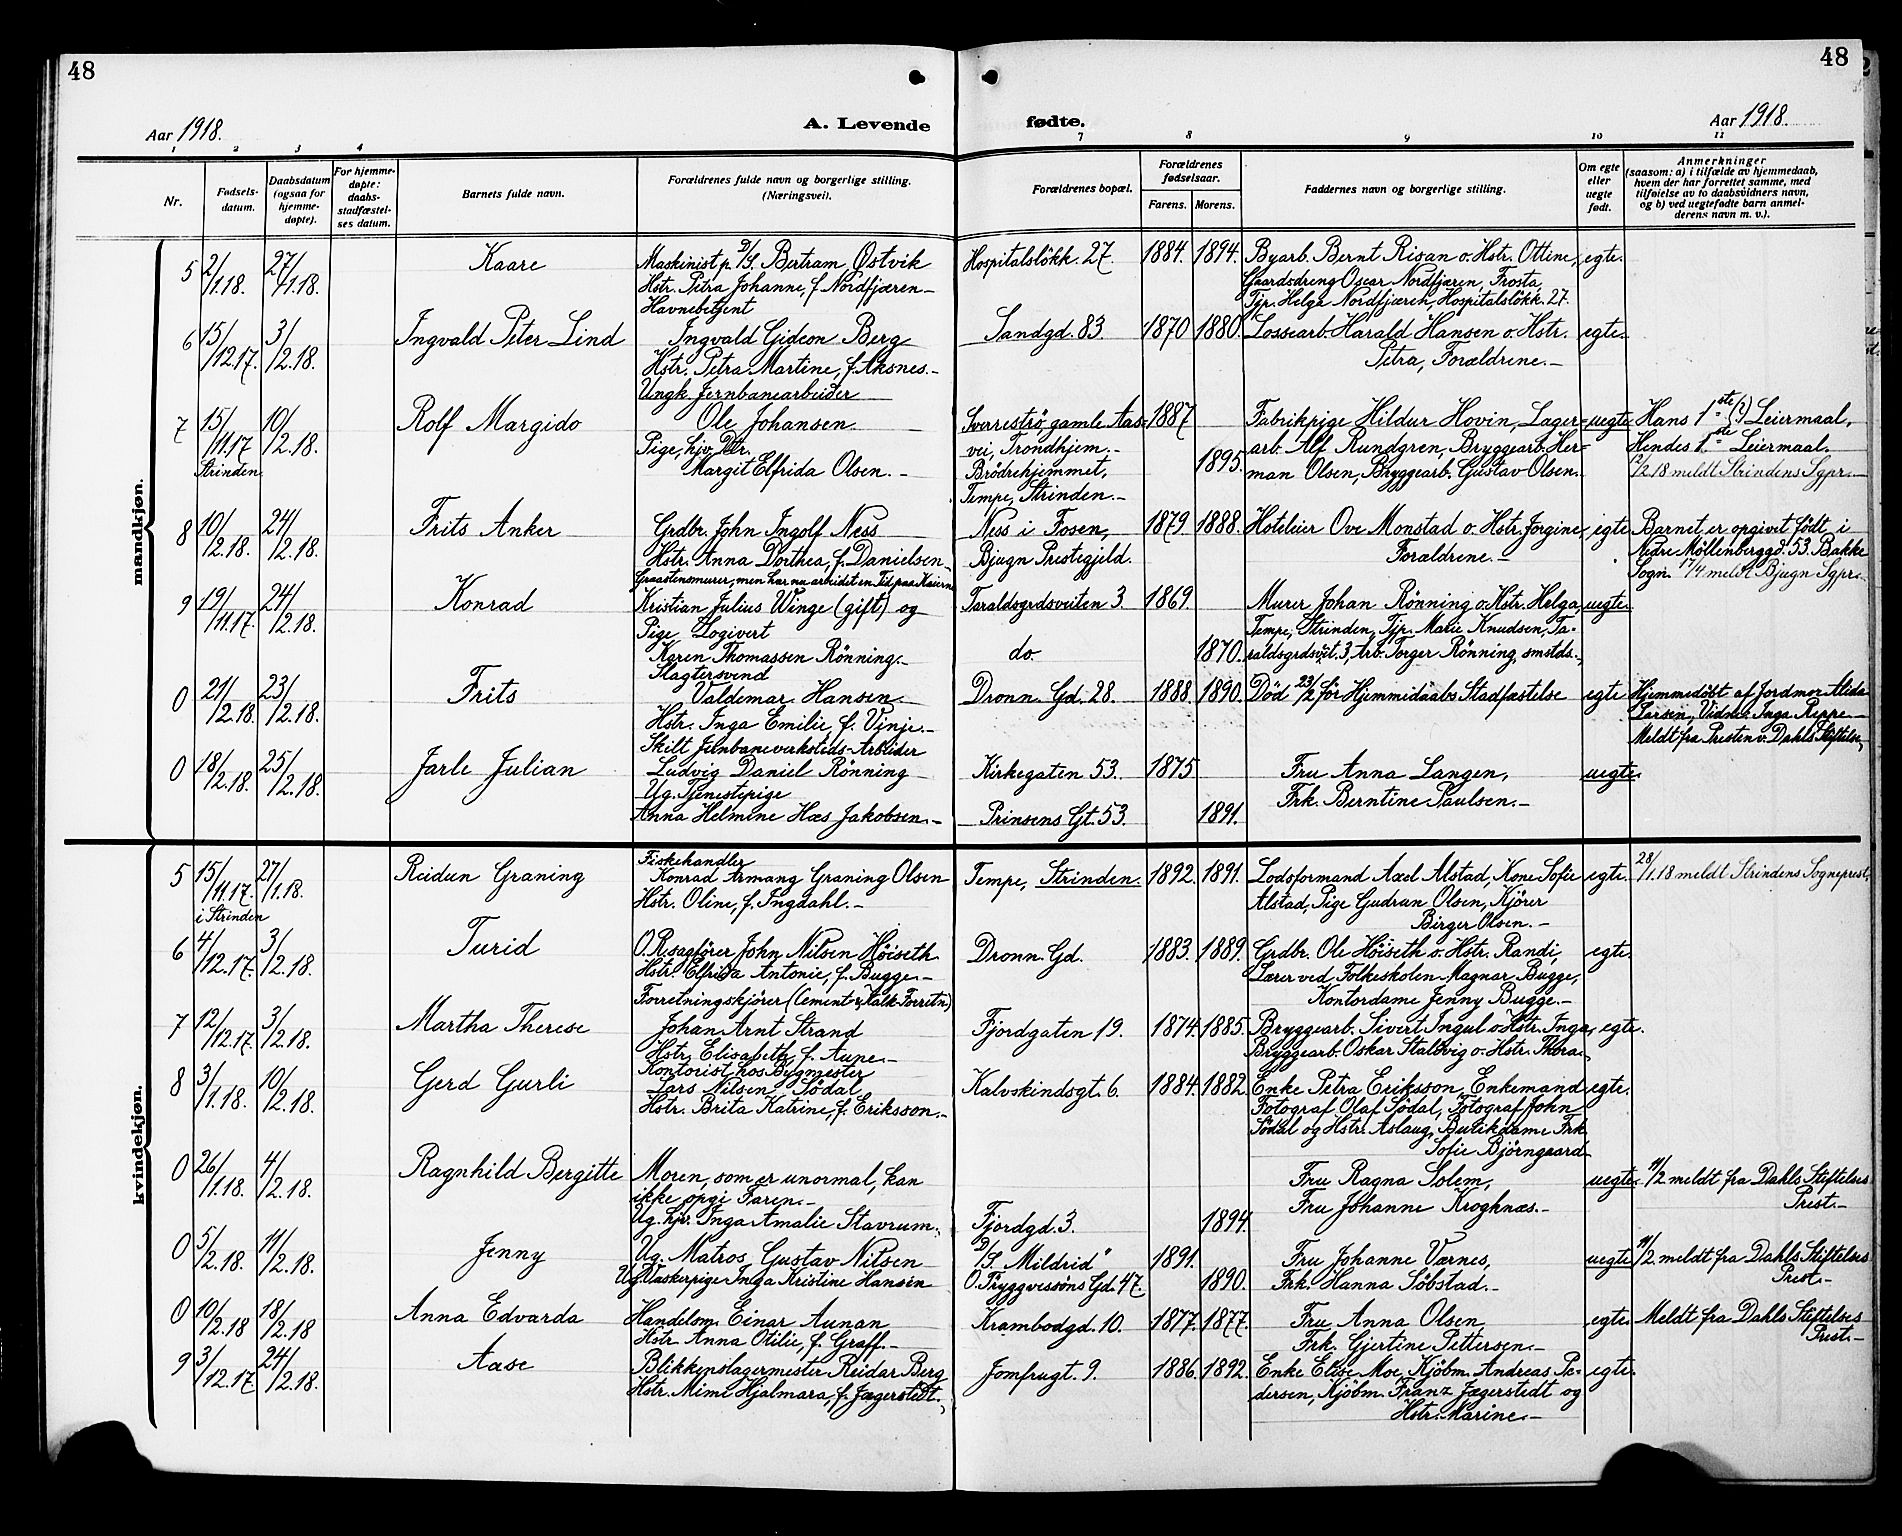 48
48
Aar 1918.
A. Levende
fødte.
Aar 1918.
1 2 3 4 7 8 9 10 11
Nr.
Fødsels-
datum.
Daabsdatum
(ogsaa for
hjemme-
døpte).
For hjemme-
døpte:
daabs-
stadfæstel-
ses datum.
Barnets fulde navn.
Forældrenes fulde navn og borgerlige stilling.
(Næringsvei).
Forældrenes bopæl.
Forældrenes
fødselsaar.
Farens. Morens.
Faddernes navn og borgerlige stilling.
Om egte
eller
uegte
født.
Anmerkninger
(saasom: a) i tilfælde av hjemmedaab,
hvem der har forrettet samme, med
tilføielse av to daabsvidners navn,
og b) ved uegtefødte barn anmel-
derens navn m. v.).
mandkjøn.
5 2/1.18. 27/1.18. Kaare
Maskinist p. D/S. Bertram Østvik
Hstr. Petra Johanne, f. Nordfjæren
Hospitalsløkk. 27. 1884. 1894.
Byarb. Bernt Risan o. Hstr. Ottine,
Gaardsdreng Oscar Nordfjæren, Frosta,
Tjp. Helga Nordfjæren, Hospitalsløkk. 27.
egte.
6 15/12.17. 3/2.18. Ingvald Peter Lind
Havnebetjent
Ingvald Gideon Berg
Hstr. Petra Martine, f. Aksnes.
Sandgd. 83 1870 1880.
Lossearb. Harald Hansen o. Hstr.
Petra, Forældrene.
egte.
7 15/11.17 10/2.18. Rolf Margido
Strinden
Ungk. Jernbanearbeider
Ole Johansen
Pige, hjv. Dtr.
Margit Elfrida Olsen.
Sverrestrø, gamle Aas-
vei, Trondhjem.
Brödrehjemmet,
Tempe, Strinden.
1887
1895.
Fabrikpige Hildur Hovin, Lager-
arb. Alf Rundgren, Bryggearb. Her-
man Olsen, Bryggearb. Gustav Olsen.
uegte
Hans 1ste (?) Leiermaal,
Hendes 1ste Leiermaal.
1/2.18 meldt Strindens Sgpr.
8 10/2.18. 24/2.18. Frits Anker
Grdbr. John Ingolf Ness
Hstr. Anna Dorthea, f. Danielsen
Ness i Fosen,
Bjugn Prestegjeld.
1879 1888.
Hoteleier Ove Monstad o. Hstr. Jorgine,
Forældrene.
egte
Barnet er opgivet født i
Nedre Møllenberggd. 53. Bakke
Sogn. 17/4 meldt Bjugn Sgpr.
9 19/11.17. 24/2.18. Konrad
Graastensmurer, men har nu arbeidet en Tid paa Kaierne
Kristian Julius Winge (gift) og
Pige Logivert
Karen Thomassen Rönning.
Taraldsgrdsveiten 3.
do.
1869
1870.
Murer Johan Rönning o. Hstr. Helga,
Tempe, Strinden, Tjp. Marie Knudsen, Ta-
raldsgrdsvt. 3, Arb. Torger Rönning, smstds.
uegte
0 21/2.18. 23/2.18. Frits
Slagtersvend
Valdemar Hansen
Hstr. Inga Emilie, f. Vinje.
Dronn. Gd. 28. 1888 1890.
Död 23/2 för Hjemmedaabs Stadfæstelse
egte
Hjemmedöbt af Jordmor Alida
Larsen, Vidne: Inga Reppe
Meldt fra Presten v. Dahls Stiftelse,
0 18/2.18. 25/2.18. Jarle Julian
Skilt Jernbaneverksteds-Arbeider
Ludvig Daniel Rönning
Ug. Tjenestepige
Anna Helmine Hæs Jakobsen.
Kirkegaten 53.
Prinsens Gt. 53.
1875
1891.
Fru Anna Langen,
Frk. Berntine Paulsen.
uegte.
kvindekjøn.
5 15/11.17. 27/1.18. Reidun Graning
i Strinden
Fiskehandler
Konrad Armang Graning Olsen
Hstr. Oline, f. Ingdahl.
Tempe, Strinden. 1892. 1891.
Lodsformand Axel Alstad, Kone Sofie
Alstad, Pige Gudrun Olsen, Kjører
Birger Olsen.
egte.
28/1.18 meldt Strindens Sogneprest.
6 4/12.17. 3/2.18. Turid
O.R.sagfører John Nilsen Höiseth
Hstr. Elfrida Antonie, f. Bugge.
Dronn. Gd. 1883. 1889.
Grdbr. Ole Höiseth o. Hstr. Randi,
Lærer ved Folkeskolen Magnar Bugge,
Kontordame Jenny Bugge.
egte.
7 12/12.17. 3/2.18. Martha Therese
Forretningskjörer (Cement & Kalk-Forretn)
Johan Arnt Strand
Hstr. Elisabeth, f. Aune.
Fjordgaten 19. 1874. 1885.
Bryggearb. Sivert Ingul o. Hstr. Inga,
Bryggearb. Oskar Stalsvig o. Hstr. Thora
egte.
8 3/1.18. 10/2.18. Gerd Gurli
Kontorist hos Bygmester
Lars Nilsen Södal
Hstr. Brita Katrine, f. Eriksson.
Kalvskindsgt. 6. 1884. 1882.
Enke Petra Eriksson, Enkemand
Fotograf Olaf Södal, Fotograf John
Södal og Hstr. Aslaug, Butikdame Frk.
Sofie Bjørngaard
egte.
0 26/1.18. 4/2.18. Ragnhild Bergitte
Moren, som er unormal, kan
ikke opgi Faren.
Ug. hjv. Inga Amalie Stavrum.
Fjordgd. 3. 1894.
Fru Ragna Solem,
Fru Johanne Kroghnæs.
uegte.
11/2 meldt fra Dahls Stiftelses
Prest.
0 5/2.18. 11/2.18. Jenny
Ug. Matros Gustav Nilsen
Ug. Vaskerpige Inga Kristine Hansen
D/S. Mildrid"
O. Tryggvessöns Gd. 47.
1891.
1890.
Fru Johanne Varnes,
Frk. Hanna Söbstad.
uegte
11/2 meldt fra Dahls Stiftelses
Prest.
0 10/2.18 18/2.18 Anna Edvarda
Handelsm. Einar Aunan
Hstr. Anna Otilie, f. Graff.
Krambodgd. 10. 1877. 1877.
Fru Anna Olsen
Frk. Gjertine Pettersen.
egte.
Meldt fra Dahls Stiftelses
Prest.
9 3/12.17 24/2.18. Aase
Blikkenslagermester Reidar Berg
Hstr. Mimi Hjalmara, f. Jægerstedt.
Jomfrugt. 9. 1886. 1892.
Enke Elise Moe, Kjöbm. Andreas Pe-
dersen, Kjöbm. Franz Jægerstedt og
Hstr. Marine.
egte.